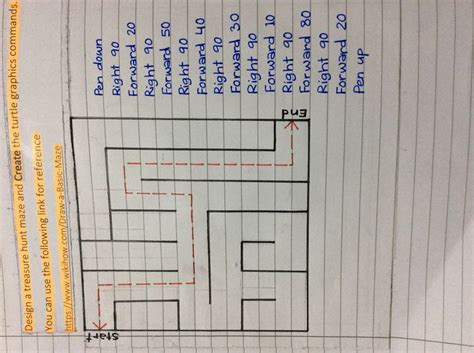 Design a treasure hunt maze and Create the turtle graphics commands.
You can use the following link for reference
https://www.wikihow.com/Draw-a-Basic-Maze
Start
End
Pen down
Right 90
Forward 20
Right 90
Forward 50
Right 90
Forward 40
Right 90
Forward 30
Right 90
Forward 10
Right 90
Forward 80
Right 90
Forward 20
Pen up